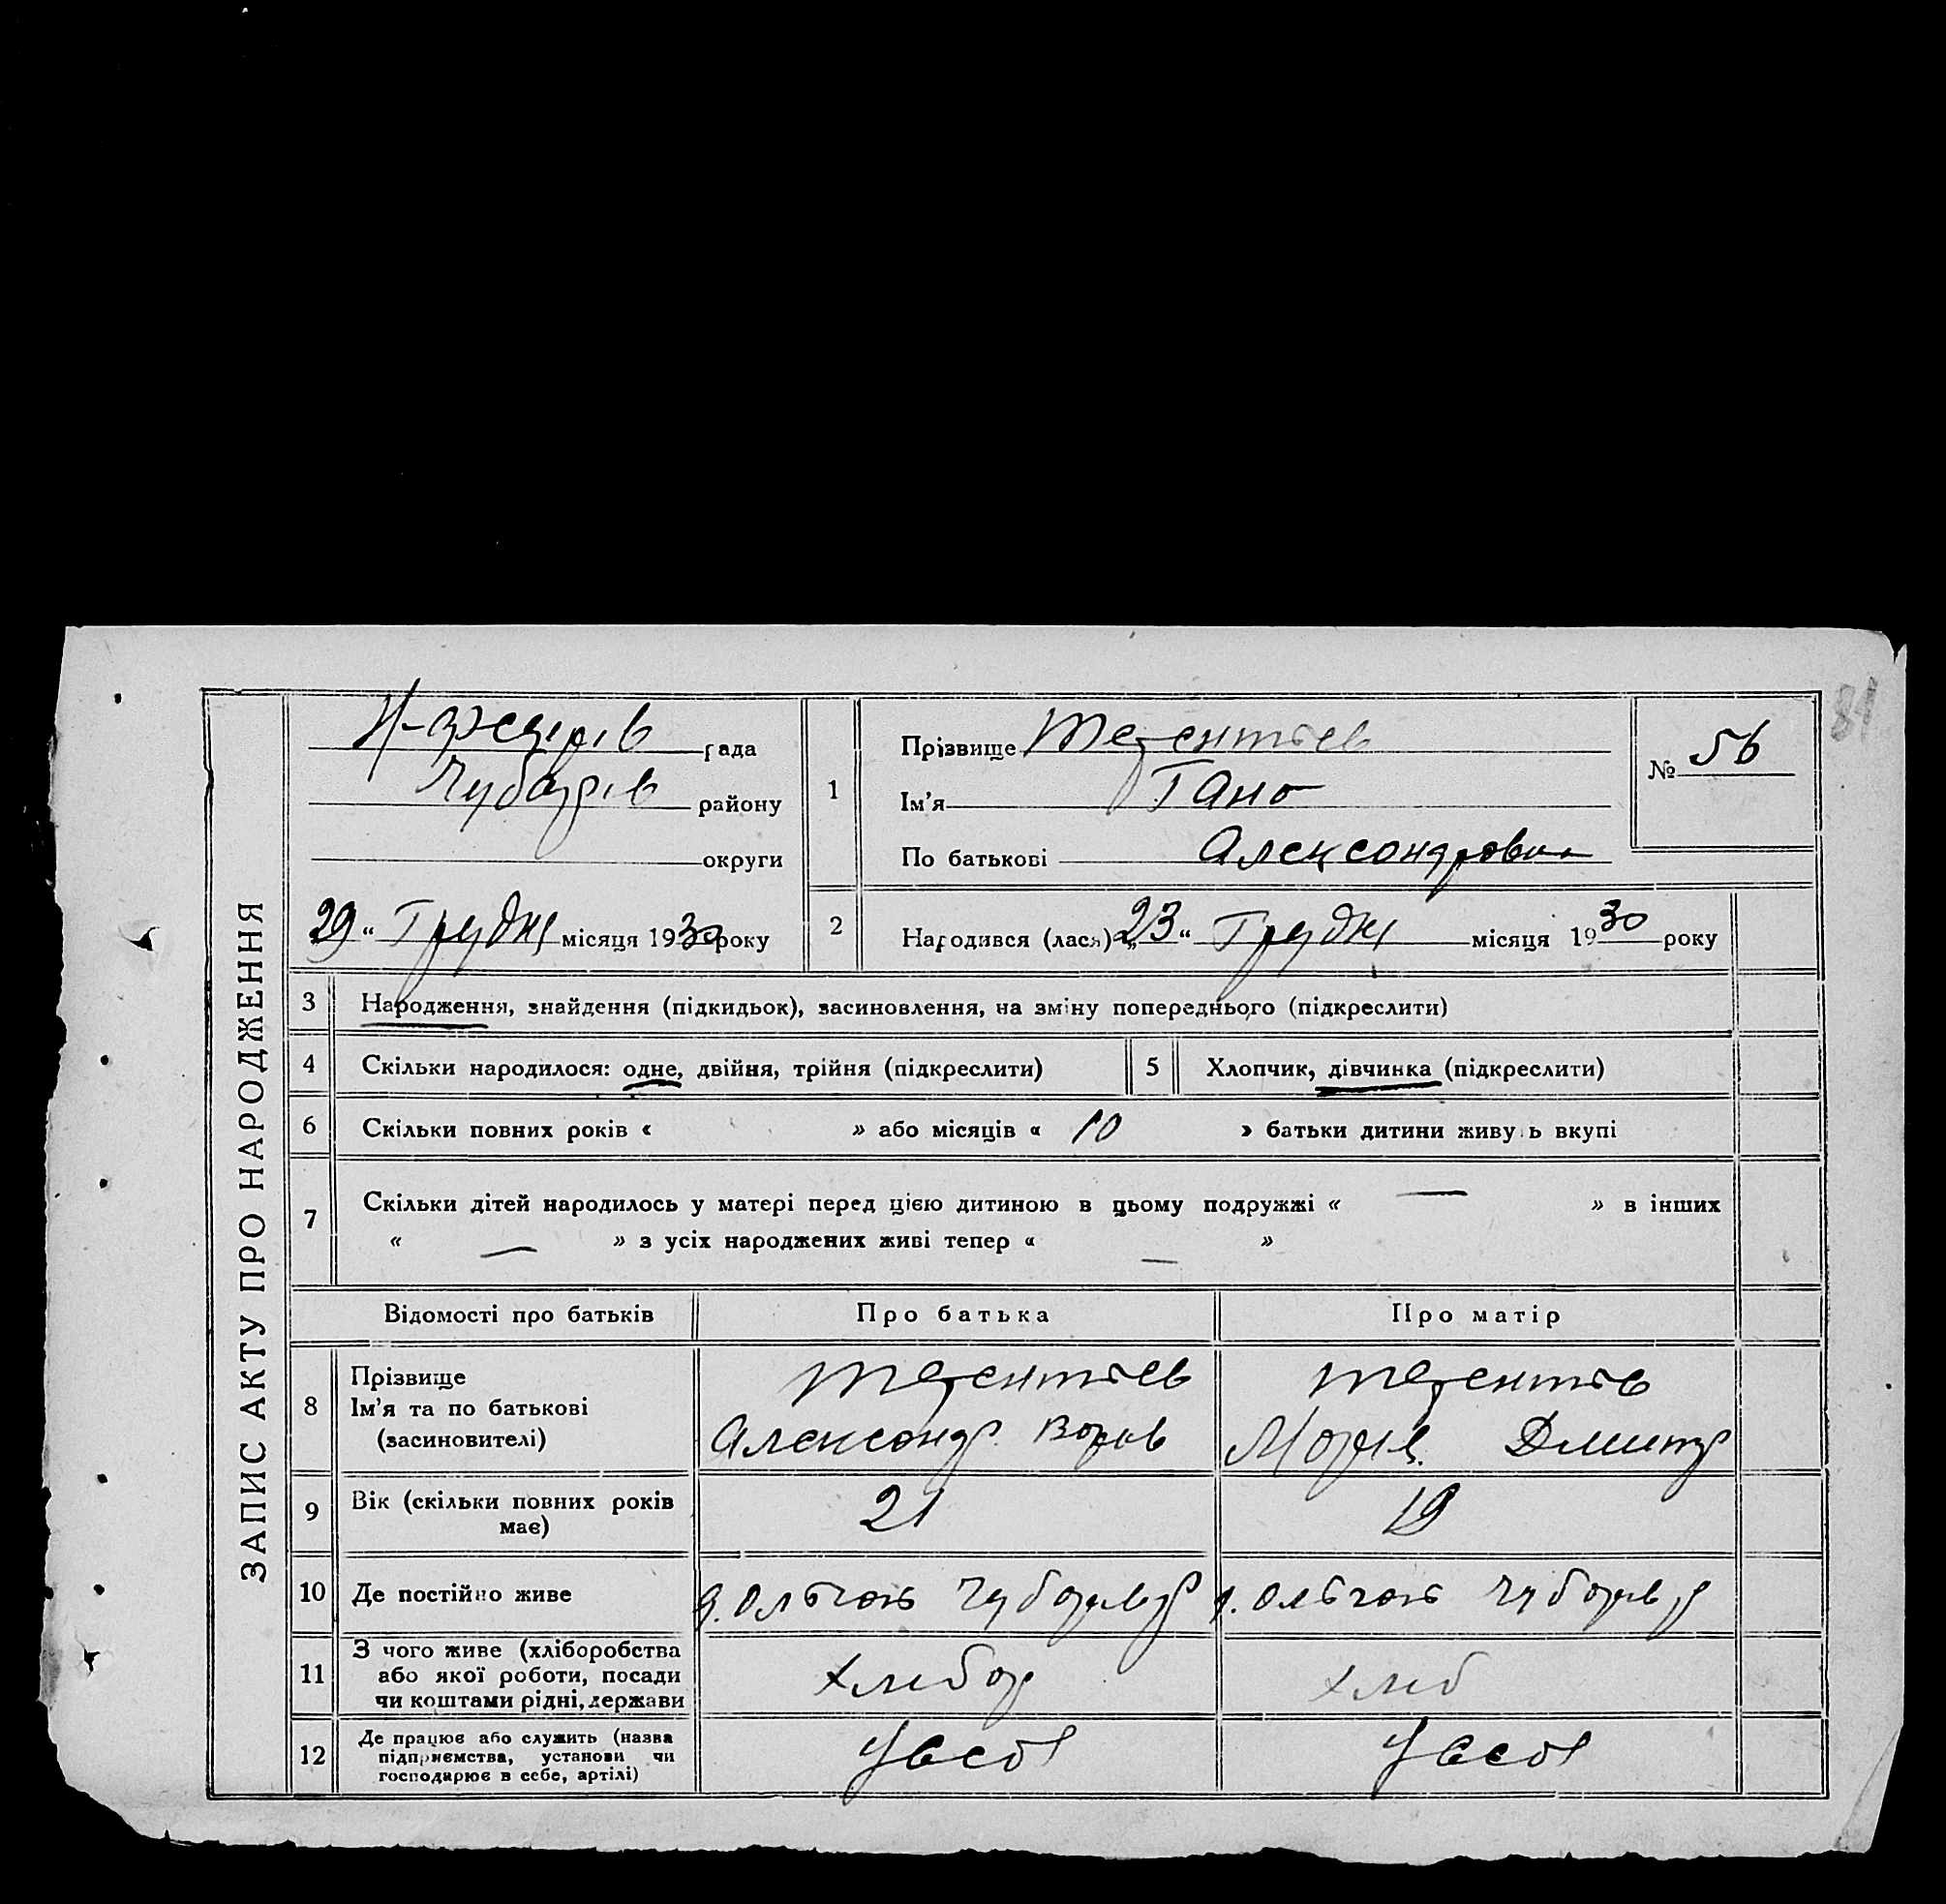 81
ЗАПИС АКТУ ПРО НАРОДЖЕННЯ
рада
Чубарів району
округи
29 “ Грудні місяця 1930 року
1
Прізвище Терентьев
Ім’я Гана
По батькові Александровна
№ 56
2
Народився (лася) „ 23 “ Грудні місяця 1930 року
3 Народження, знайдення (підкидьок), засиновлення, на зміну попереднього (підкреслити)
4 Скільки народилося: одне, двійня, трійня (підкреслити)
5 Хлопчик, дівчинка (підкреслити)
6 Скільки повних років « » або місяців « 10 » батьки дитини живуть вкупі
7 Скільки дітей народилось у матері перед цією дитиною в цьому подружжі « — » в інших
« — » з усіх народжених живі тепер « — »
Відомості про батьків Про батька Про матір
8 Прізвище
Ім’я та по батькові
(засиновителі)
Терентьев
Александр
Терентьев
Мария Дмитр
9 Вік (скільки повних років
має)
21
19
10 Де постійно живе
11 З чого живе (хліборобства
або якої роботи, посади
чи коштами рідні, держави
хлибор
хлиб
12 Де працює або служить (назва
підприємства, установи чи
господарює в себе, артілі)
У себя
У себя